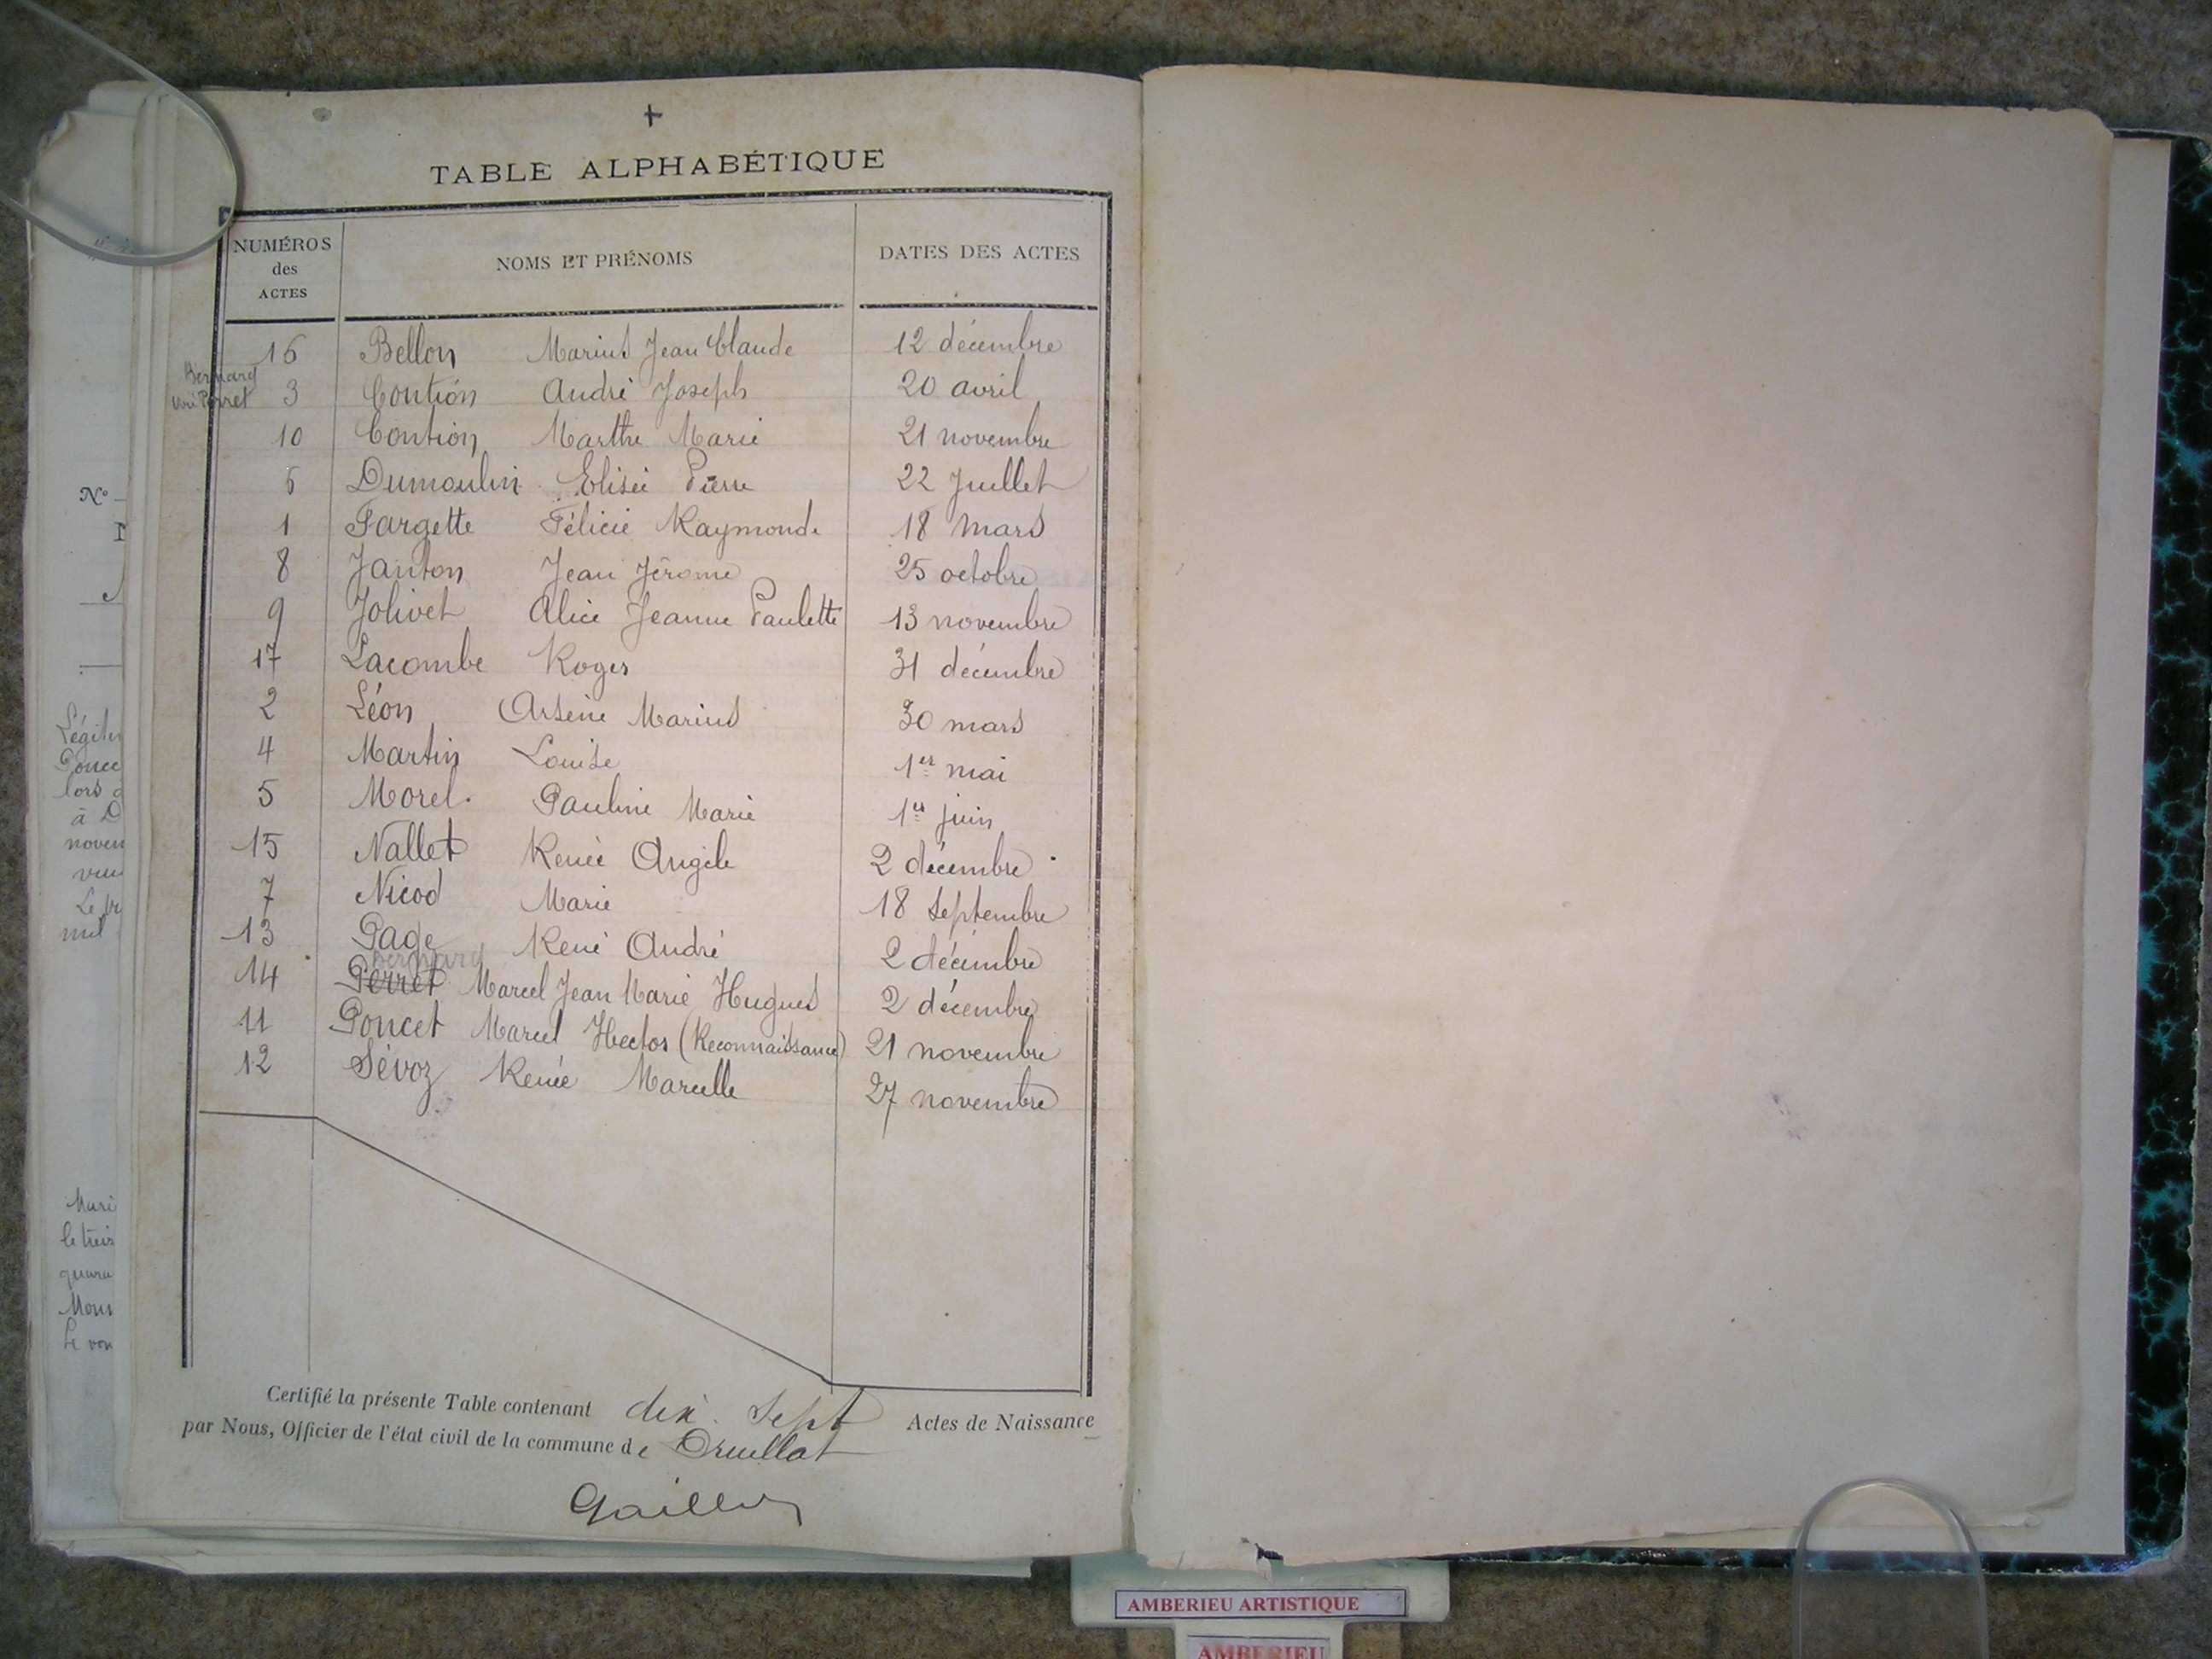 +
TABLE ALPHABÉTIQUE
NUMÉROS
des
ACTES
NOMS ET PRÉNOMS
DATES DES ACTES
16 Bellon Marius Jean Claude 12 décembre
Bernard
voir Perret
3 Coution André Joseph 20 avril
10 Coution Marthe Marie 21 novembre
6 Dumoulin Elisée Pierre 22 Juillet
1 Fargette Félicie Raymonde 18 mars
8 Janton Jean Jérome 25 octobre
9 Jolivet Alice Jeanne Paulette 13 novembre
17 Lacombe Roger 31 décembre
2 Léon Arsène Marius 30 mars
4 Martin Louise 1er mai
5 Morel Pauline Marie 1er juin
15 Nallet Renée Angèle 2 décembre
7 Nicod Marie 18 Septembre
13 Page René André 2 décembre
Bernard
14 Perret Marcel Jean Marie Hugues 2 décembre
11 Poncet Marcel Hector (Reconnaissance) 21 novembre
12 Sévoz Renée Marcelle 27 novembre
Certifié la présente Table contenant dix. sept Actes de Naissance
par Nous, Officier de l'état civil de la commune de Druillat
N°
Légitim
Ponce
lors d
à D
novem
Le pr
mil
Mari
Le von
AMBERIEU ARTISTIQUE
AMBERIEU